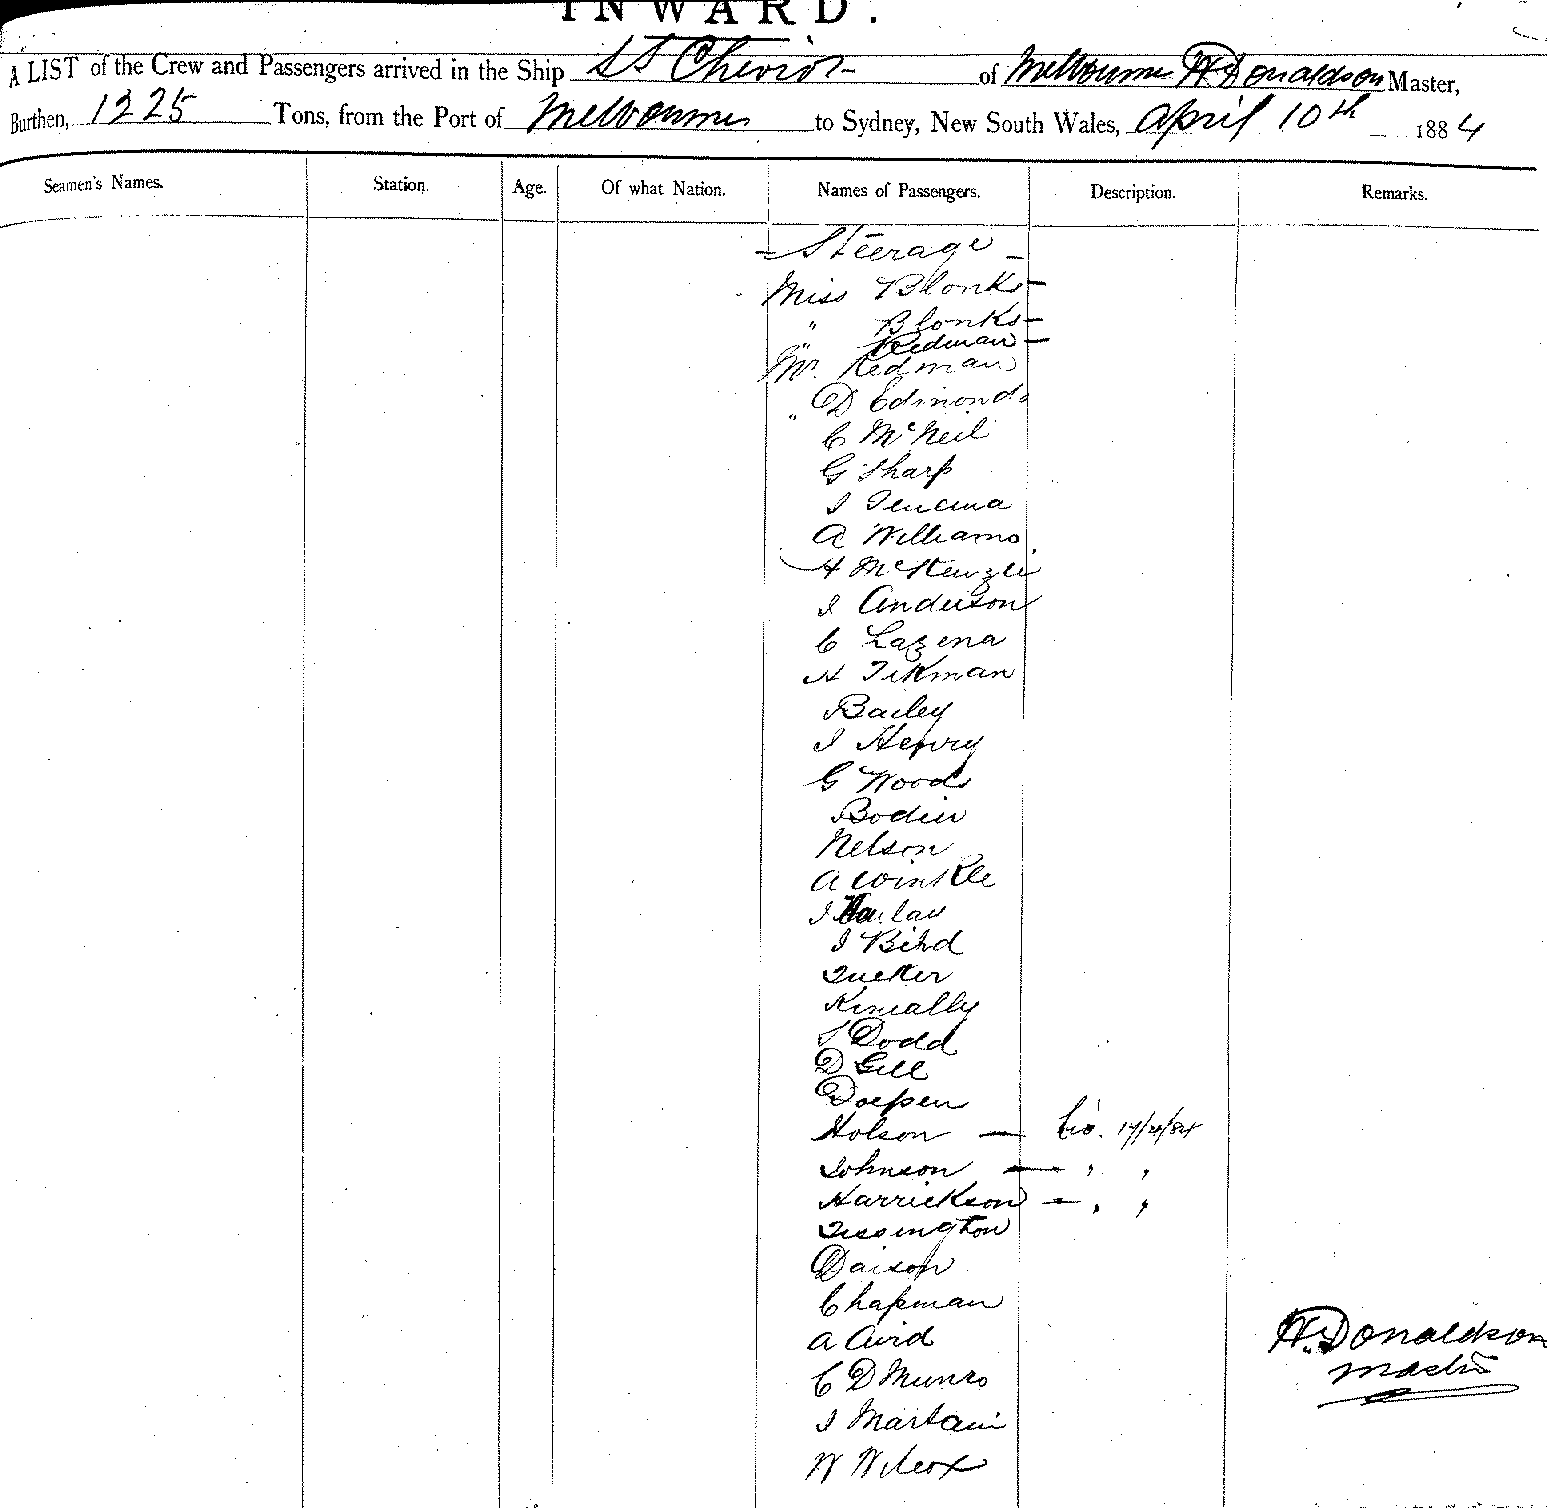 INWARD.
A LIST of the Crew and Passengers arrived in the Ship SS Cheviot of Melbourne W Donaldson Master,
Burthen, 1225 Tons, from the Port of Melbourne to Sydney, New South Wales, April 10th 1884
Seamen's Names. Station. Age. Of what Nation. Names of Passengers. Description. Remarks.
- Steerage -
Miss Blonks -
" Blonks -
" Redman -
Mr. Redman
" D Edmonds
C McNeil
G Sharp
J
A Williams
H McKenzie
J Anderson
C Lazena
H Tekman
Bailey
J Henry
G Wood
Bodin
Nelson
A Winkle
J
J Bird
Tucker
Kineally
J Dodd
D Gill
Doepen
Holson — 17/4/84
Johnson — " "
Harrickson — " "
Tissington
Daison
Chapman
A Avid
W. Donaldson
Master
C D Munro
J Martain
W Wilcox